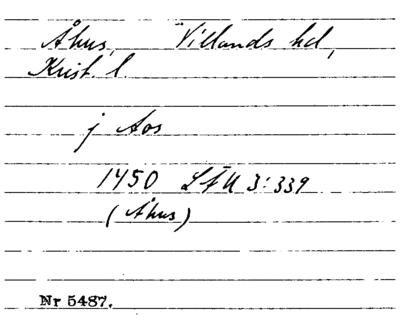 Åhus, Villands hd,
Krist. l.
j Aos
1450 LÄU 3:339
(Åhus)
Nr 5487.